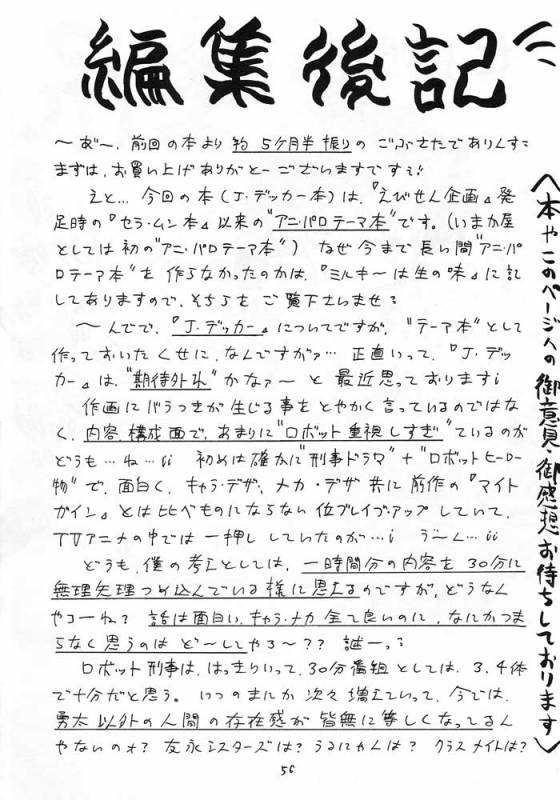 編集後記
〜あ゛〜、前回の本より約5ケ月半振りのごぶさたでありんす:
まずは、お買い上げありがとーございますですぅ!!
えと… 今回の本(J・デッカー本)は、『えびせん企画』発
足時の『セラ・ムン本』以来の"アニ・パロテーマ本"です。(いまか屋
としては初の"アニ・パロテーマ本") なぜ今まで長い間"アニ・パ
ロテーマ本"を作らなかったのかは、『ミルキーは生の味』に記
してありますので、そちらをご覧下さいませ:
〜んでで、『J・デッカー』についてですが、"テーマ本"として
作っておいたくせに、なんですがァ… 正直いって、『J・デッ
カー』は、"期待外れ"かなァ〜と最近思っておりますi
作画にバラつきが生じる事をとやかく言っているのではな
く、内容、構成面で、あまりに"ロボット重視しすぎ"ているのが
どうも…ね…ii 初めは確かに"刑事ドラマ"+"ロボットヒーロー
物"で、面白く、キャラ・デザ、メカ・デザ共に前作の『マイト
ガイン』とは比べものにならない位ブレイブアップしていて、
TVアニメの中では一押ししていたのが…i う〜ん…ii
どうも、僕の考えとしては、一時間分の内容を30分に
無理矢理つめ込んでいる様に思えるのですが、どうなん
やコーね? 話は面白い、キャラ・メカ全て良いのに、なにかつま
らなく思うのはど〜してやろ〜?? 誰一っi
ロボット刑事は、はっきりいって、30分番組としては、3、4体
で十分だと思う。いつのまにか次々増えていって、今では、
勇太以外の人間の存在感が皆無に等しくなってるん
やないのォ? 友永シスターズは? うるにゃんは? クラスメイトは?
〈本やこのページへの御意見・御感想お待ちしております〉
56